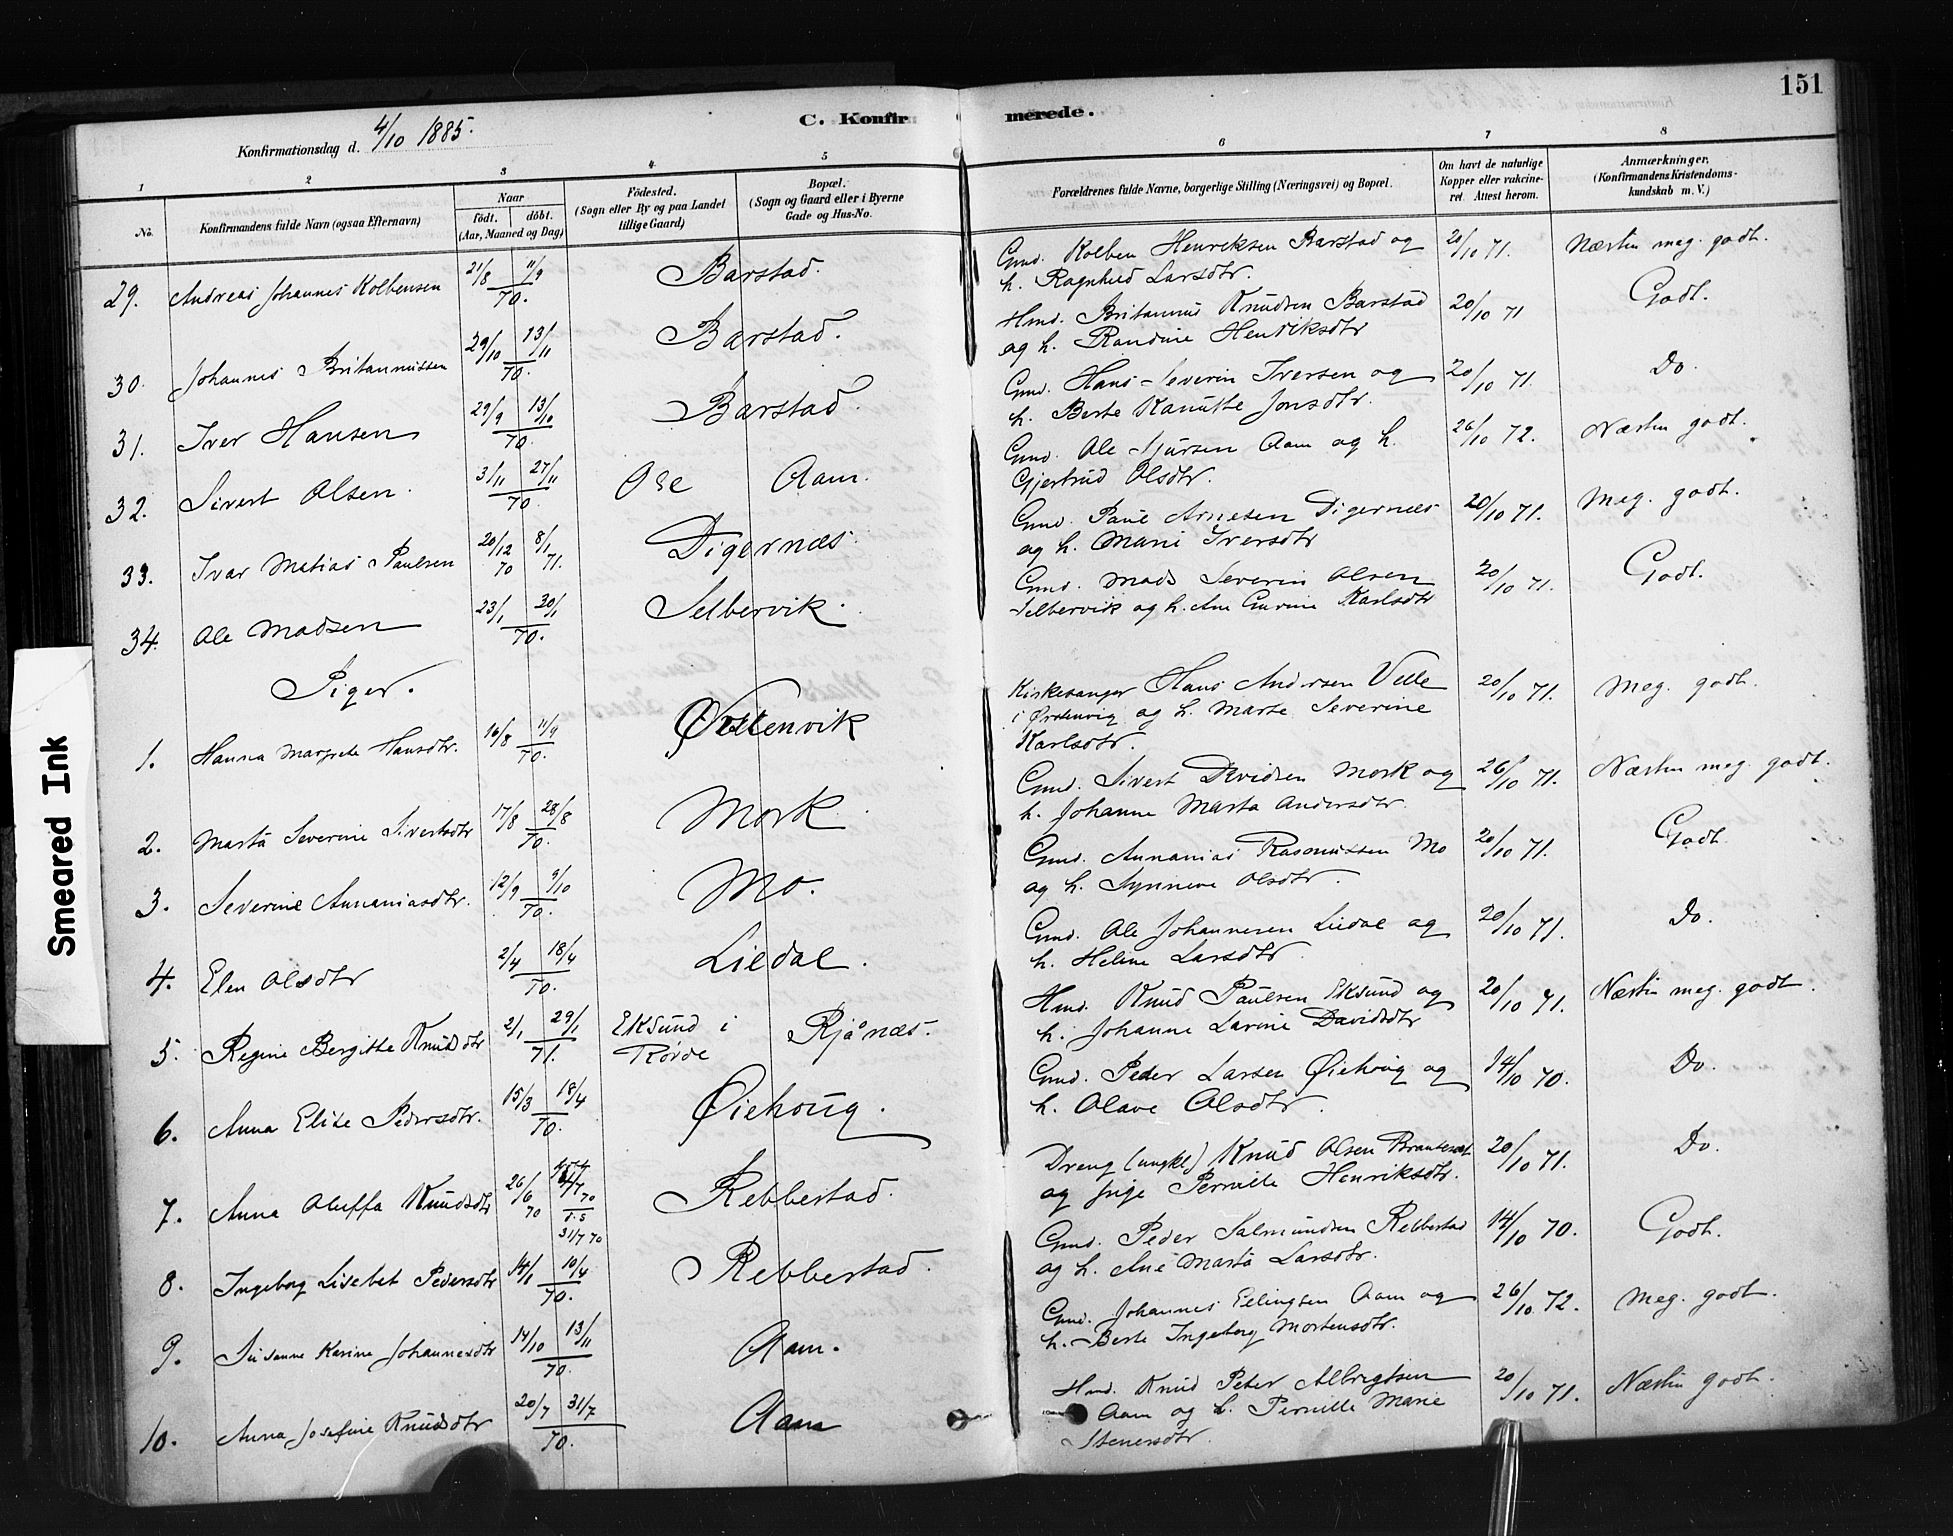 151
C. Konfirmerede.
Konfirmationsdag d. 4/10 1885.
1 2 3 4 5 6 7 8
No. Konfirmandens fulde Navn (ogsaa Efternavn) Naar født. døbt. (Aar, Maaned og Dag) Fødested. (Sogn eller By og paa Landet tillige Gaard) Bopæl. (Sogn og Gaard eller i Byerne Gade og Hus-No. Forældrenes fulde Navne, borgerlige Stilling (Næringsvei) og Bopæl. Om havt de naturlige Kopper eller vakcineret. Attest herom. Anmærkninger. (Konfirmandens Kristendomskundskab m. V.)
29. Andreas Johannes Kolbensen 21/8 11/9 70. Barstad. Gmd. Kolben Henriksen Barstad og 20/10 71. Næsten meg. godt.
h. Ragnhild Larsdtr.
30. Johannes Britannussen 29/10 13/11 70. Barstad. Hmd. Britannus Knudsen Barstad 20/10 71 Godt.
og h. Randine Henriksdtr
31. Iver Hansen 29/9 13/10 70. Barstad. Gmd. Hans Severin Iversen og 20/10 71. Do.
h. Berte Kanutte Jonsdtr.
32. Sivert Olsen. 3/11 27/11 70. Ose Aam. Gmd. Ole Sjursen Aam og h. 26/10 72. Næsten godt.
Gjertrud Olsdtr.
33. Ivar Matias Paulsen 20/12 70 8/1 71. Digernæs. Gmd. Paul Arnesen Digernæs 20/10 71. Meg. godt.
og h. Marie Iversdtr
34. Ole Madsen 23/1 30/1 70. Selbervik. Gmd. Mads Severin Olsen 20/10 71. Godt.
Selbervik og h. Ane Gurine Karlsdtr
Piger.
1. Hanna Margrete Hansdtr. 16/8 11/9 70. Ørstenvik Kirkesanger Hans Andersen Velle 20/10 71. Meg. godt.
i Ørstenvig og h. Marte Severine
Karlsdtr.
2. Marta Severine Sivertsdtr 17/8 28/8 70. Mork. Gmd. Sivert Davidsen Mork og 26/10 71. Næsten meg. godt.
h. Johanne Marta Andersdtr.
3. Severine Annaniasdtr. 12/9 9/10 70. Mo. Gmd. Annanias Rasmussen Mo 20/10 71. Godt
og h. Synneve Olsdtr.
4. Elen Olsdtr 2/4 18/4 70. Liedal. Gmd. Ole Johannesen Liedal og 20/10 71. Do.
h. Heline Larsdtr
5. Regine Bergitte Knudsdtr 2/1 29/1 71. Eksund i Rovde Rjånæs. Hmd. Knud Paulsen Eksund og 20/10 71. Næsten meg. godt.
h. Johanne Lavine Davidsdtr
6. Anna Elise Pedersdtr. 15/3 18/4 70. Øiehoug. Gmd. Peder Larsen Øiehoug og 14/10 70. Do.
h. Olave Olsdtr.
7. Anna Oluffa Knudsdtr 26/6 70 31/7 70 Rebbestad. Dreng (ungkl) Knud Olsen 20/10 71. Do.
og pige Pernille Henriksdtr.
8. Ingeborg Lisebet Pedersdtr 10/4 70. Rebbestad. Gmd. Peder Salmundsen Rebbestad 14/10 70. Godt.
og h. Ane Marta Larsdtr.
9. Susanne Karine Johannesdtr 14/10 13/11 70. Aam. Gmd. Johannes Ellingsen Aam og 26/10 72. Meg. godt.
h. Berte Ingeborg Mortensdtr.
10. Anna Josefine Knudsdtr 20/7 31/7 70. Aam Hmd. Knud Peter Albregtsen 20/10 71. Næsten godt.
Aam og h. Pernille Marie
Stenersdtr.
Smeared Ink